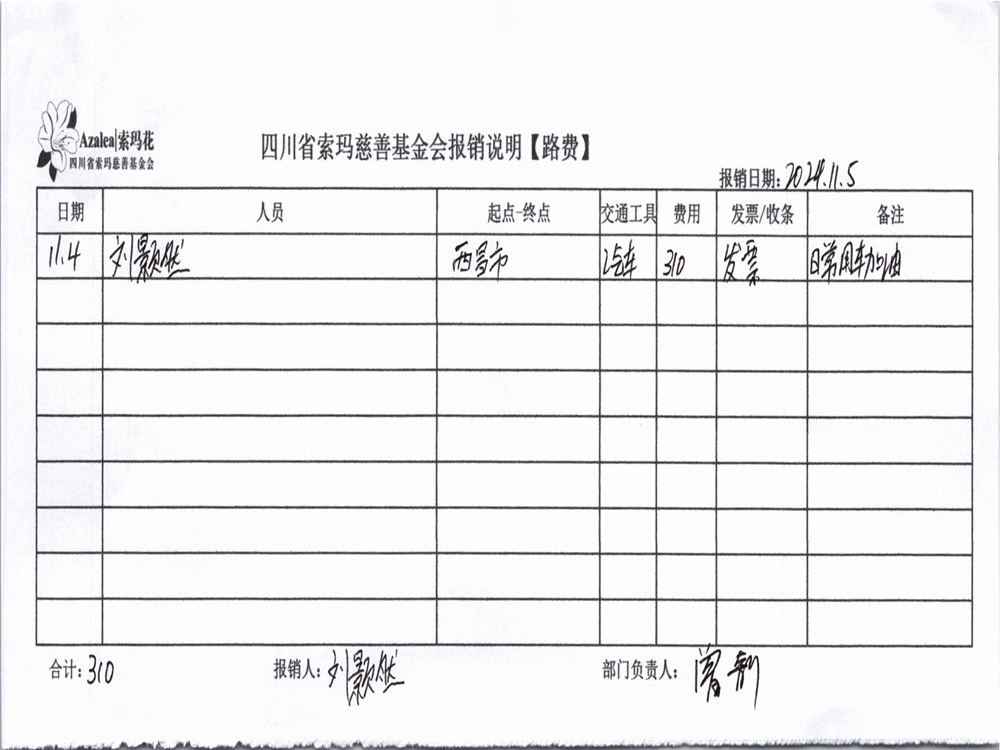 Azalea|索玛花
四川省索玛慈善基金会
四川省索玛慈善基金会报销说明【路费】
报销日期：2024.11.5
日期 人员 起点-终点 交通工具 费用 发票/收条 备注
11.4 刘颢然 西昌市 汽车 310 发票 日常用车加油
合计：310 报销人：刘颢然 部门负责人：曾